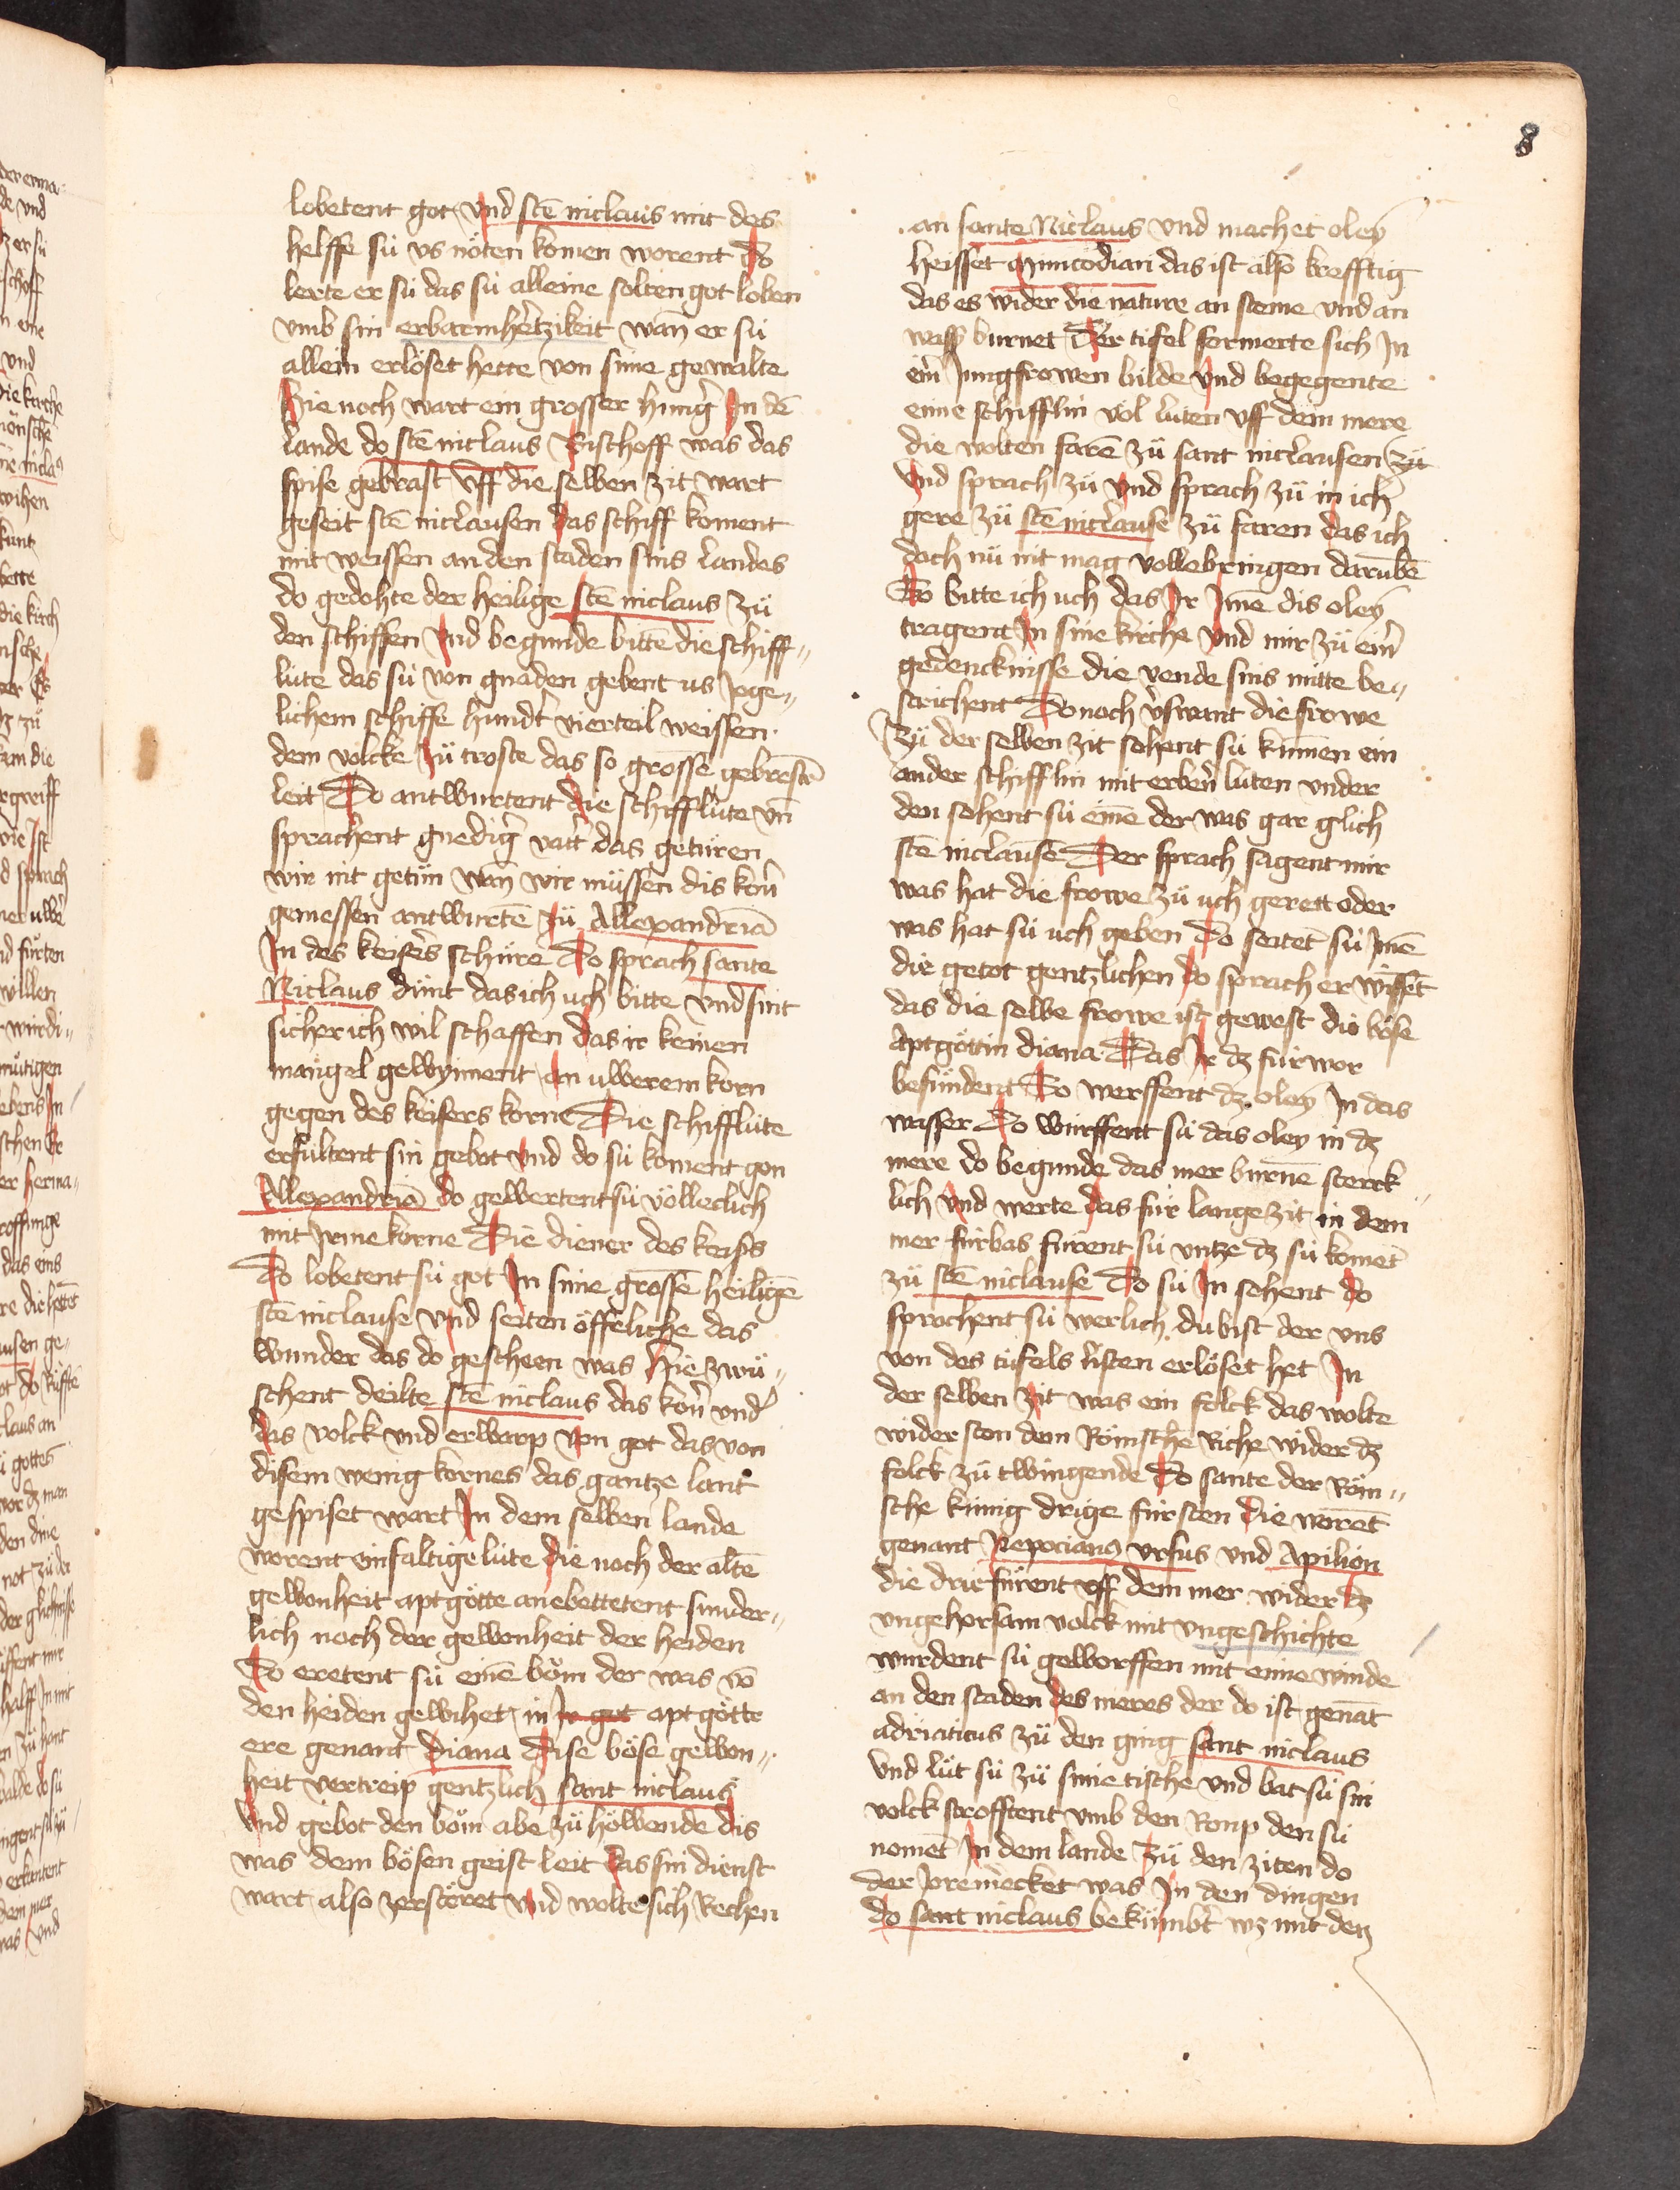 8
lobetent got vnd scē niclaus mit des
helffe sü vs nöten komen worent do
lerte er sü das sü alleine solten got loben
vmb sin erbarmhertzikeit wañ er sü
allein erlöset hette von sime gewalte
Hie noch wart ein grosser hung̃ in dē
lande do scē niclaus Bischoff was das
spise gebrast vff die selben zit wart
geseit scē niclausen das schiff koment
mit weissen an den staden sins landes
do gedohte der heilige scē niclaus zü
den schiffen vnd begunde bittē die schiff„
lüte das sü von gnaden gebent us Jege„
lichem schiffe hundt̃ vierteil weissen.
dem volcke zü troste das so grosse gebrestē
leit Do antwurtent die schifflüte vñ
sprachent gnedig̃ vatt̃ das getüren
wir nit getün wañ wir müssen dis korñ
gemessen antwurtē zü Allexandriā
In des keisers schüre Do sprach sante
Niclaus dünt das ich uch bitte vnd sint
sicher ich wil schaffen das ir keinen
mangel gewynnent an uwerem korn
gegen des keisers korne Die schifflüte
erfultent sin gebot vnd do sü koment gon
Allexandriā do gewertent sü völleclich
mit Irme korne Die diener des keisers
Do lobetent sü got In sime grossē heiligē
scē niclause vnd seiten öffeliche das
wunder das do gescheen was Hie zwü„
schent deilte scē niclaus das korñ vnd̃
das volck vnd erwarp von got das von
disem wenig kornes das gantze lant
gespiset wart In dem selben lande
worent einfaltige lüte die noch der altē
gewonheit aptgötte anebettetent sunder„
lich noch der gewonheit der heiden
Do eretent sü einē böm der was vō
den heiden gewihet in Ir got aptgötte
ere genant Diana Dise böse gewon„
heit vertreip gentzlich sant niclaus
vnd gebot den böm abe zü höwende dis
was dem bösen geist leit das sin dienst
wart also zerstöret vnd wolte sich Rechen
an sante Niclaus vnd machet oley
heisset Mintodian das ist also krefftig
das es wider die nature an steine vnd an
wass̃ burnet Der tifel formerte sich In
ein̄ Jungfrowen bilde vnd begegente
eime schifflin vol lüten vff dem mere
die wolten farē zü sant niclausen zü
vnd sprach zü vnd sprach zü in ich
gere zü scē niclause zü faren das ich
doch nü nit mag vollebringen darumbē
So bitte ich uch das Ir Ime dis oley
tragent In sine kirche vnd mir zü ein̄
gedencknisse die vende sins mitte be„
strichent Donoch v̄swant die frowe
Zü der selben zit sohent sü kummen ein
ander schifflin mit erberñ lüten vnder
den sohent sü einē der was gar glich
scē niclausē Der sprach sagent mir
was hat die frowe zü uch gerett oder
was hat sü uch geben Do seitet̄ sü Imē
die getot gentzlichen do sprach er wissēt
das die selbe frowe ist gewest die böse
Aptgöttin diana Das Ir dz für wor
befündent So werffent dz oley In das
wasser Do würffent sü das oley in dz
mere do begunde das mer burnē sterck„
lich vnd werte das für lange zit in dem
mer fürbas fürent sü vntze dz sü komēt
zü scē niclause Do sü In sohent do
sprochent sü werlich du bist der vns
von des tüfels listen erlöset het In
der selben zit was ein folck das wolte
wider ston dem Römschē Riche wider dz
folck zü twingende Do sante der Röm„
sche künig drige fürsten die worēt
genant Nepocianꝰ vrsus vnd Apilion
die drie fürent vff dem mer wider dz
vngehorsam volck mit vngeschichte
wurdent sü geworffen mit eime winde
an den staden des meres der do ist genāt
adriaticus zü den ging sant niclaus
vnd lüt sü zü sime tische vnd bat sü sin
volck stroffent vmb den Romp den sü
nomēt In dem lande zü den ziten do
der Joremercket was In den dingen
do sant niclaus bekümbt̃ wz mit den